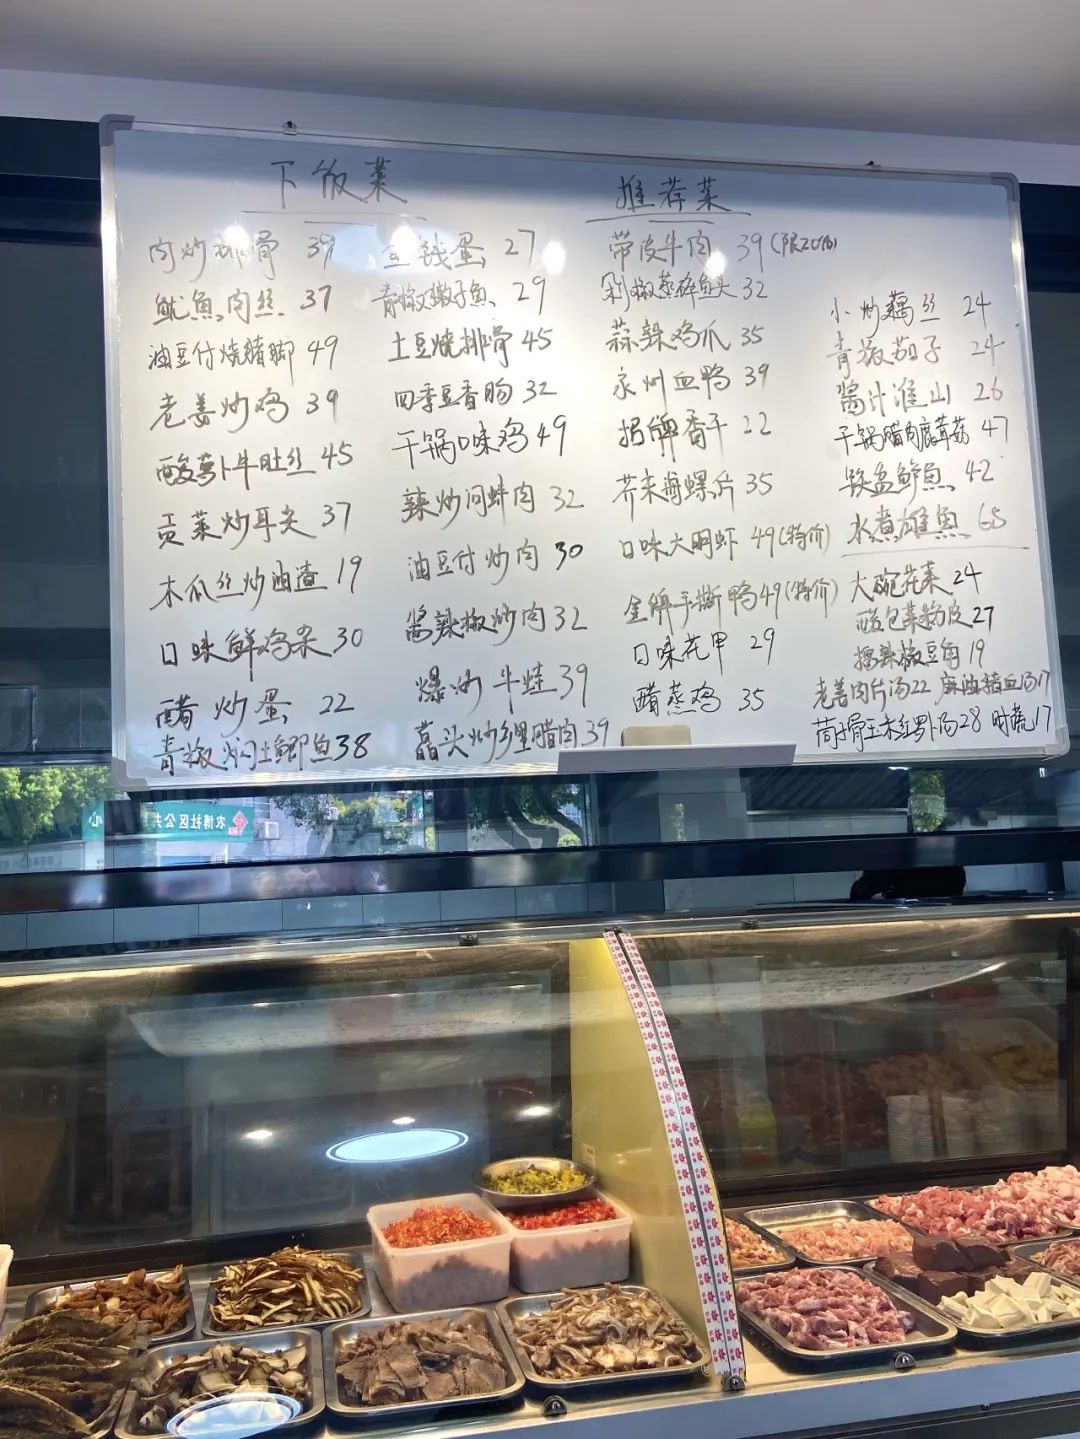 下饭菜
肉炒排骨 39
鱿鱼肉丝 37
油豆付烧猪脚 49
老姜炒鸡 39
酸萝卜牛肚丝 45
贡菜炒耳尖 37
木瓜丝炒油渣 19
口味鲜鸡杂 30
醋炒蛋 22
青椒焖土鲫鱼 38
金钱蛋 27
青椒嫩子鱼 29
土豆烧排骨 45
四季豆香肠 32
干锅口味鸡 49
辣炒河蚌肉 32
油豆付炒肉 30
酱辣椒炒肉 32
爆炒牛蛙 39
藠头炒乡里腊肉 39
推荐菜
带皮牛肉 39(限20份)
剁椒蒸碎鱼头 32
蒜辣鸡爪 35
永州血鸭 39
招牌香干 22
芥末酱螺片 35
口味大明虾 49(特价)
金牌手撕鸭49(特价)
口味花甲 29
醋蒸鸡 35
小炒藕丝 24
青椒茄子 24
酱汁淮山 26
干锅腊肉鹿茸菇 47
铁盆鲈鱼 42
水煮雄鱼 65
大碗花菜 24
酸包菜粉皮 27
擂辣椒豆角 19
老姜肉片汤22 麻油猪血汤17
筒子骨玉米红罗卜汤28 时蔬17
农博社区公共
心